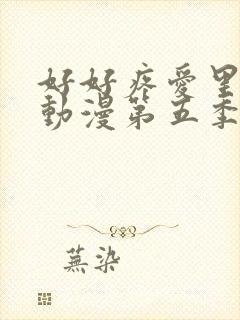 好好疼愛里
動漫第五季
蕪染